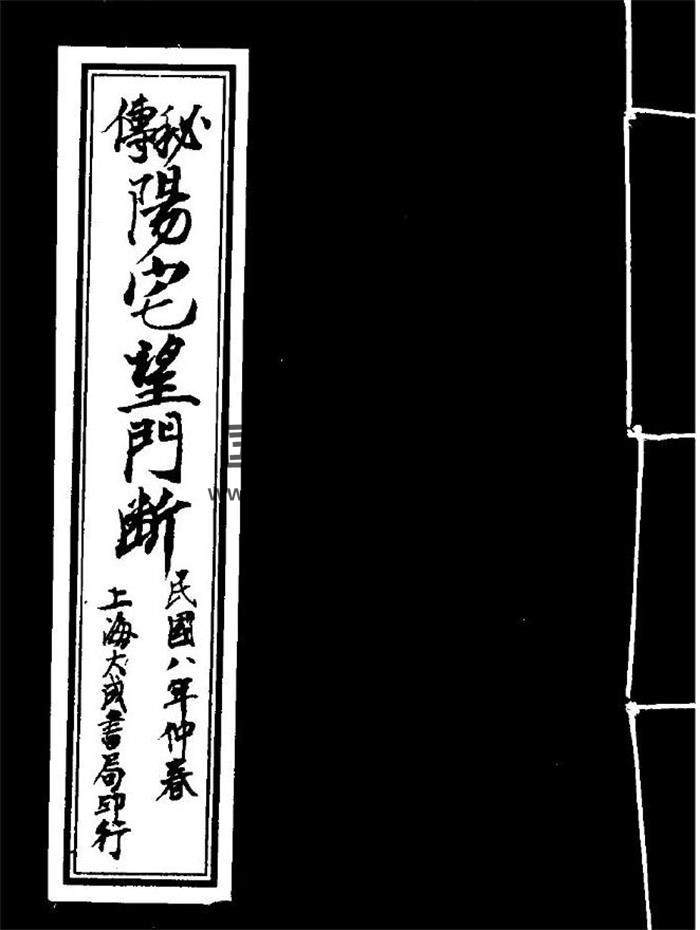 秘傳
陽宅望門断
民國八年仲春
上海大成書局印行